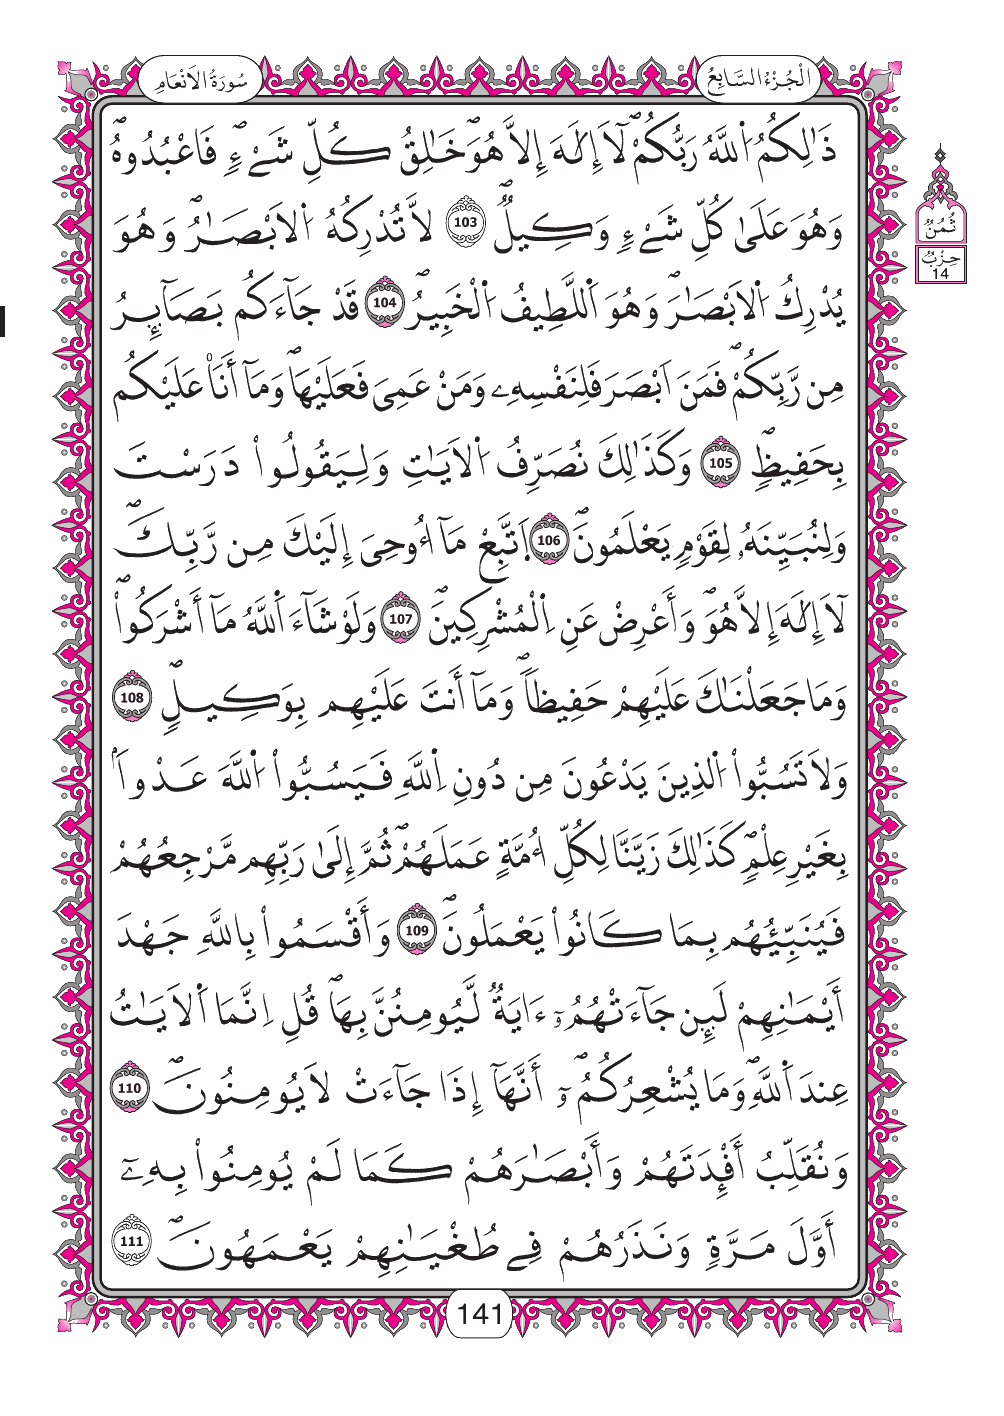 سُورَةُ الَانْعَامِ
الْجُزْءُ السَّابِعُ
ذَٰلِكُمُ اُ۬للَّهُ رَبُّكُمْۖ لَآ إِلَٰهَ إِلَّا هُوَۖ خَٰلِقُ كُلِّ شَےْءٖۖ فَاعْبُدُوهُۖ
وَهُوَ عَلَىٰ كُلِّ شَےْءٖ وَكِيلٞۖ 103 لَّا تُدْرِكُهُ اُ۬لَابْصَٰرُۖ وَهُوَ
يُدْرِكُ اُ۬لَابْصَٰرَۖ وَهُوَ اَ۬للَّطِيفُ اُ۬لْخَبِيرُۖ 104 قَدْ جَآءَكُم بَصَآئِرُ
مِن رَّبِّكُمْۖ فَمَنَ اَبْصَرَ فَلِنَفْسِهِۦ وَمَنْ عَمِيَ فَعَلَيْهَاۖ وَمَآ أَنَا۠ عَلَيْكُم
بِحَفِيظٖۖ 105 وَكَذَٰلِكَ نُصَرِّفُ اُ۬لَايَٰتِ وَلِيَقُولُواْ دَرَسْتَ
وَلِنُبَيِّنَهُۥ لِقَوْمٖ يَعْلَمُونَۖ 106 اَ۪تَّبِعْ مَآ أُوحِيَ إِلَيْكَ مِن رَّبِّكَۖ
لَآ إِلَٰهَ إِلَّا هُوَۖ وَأَعْرِضْ عَنِ اِ۬لْمُشْرِكِينَۖ 107 وَلَوْ شَآءَ اَ۬للَّهُ مَآ أَشْرَكُواْۖ
وَمَا جَعَلْنَٰكَ عَلَيْهِمْ حَفِيظاٗۖ وَمَآ أَنتَ عَلَيْهِم بِوَكِيلٖۖ 108
وَلَا تَسُبُّواْ اُ۬لذِينَ يَدْعُونَ مِن دُونِ اِ۬للَّهِ فَيَسُبُّواْ اُ۬للَّهَ عَدْواَۢ
بِغَيْرِ عِلْمٖۖ كَذَٰلِكَ زَيَّنَّا لِكُلِّ أُمَّةٍ عَمَلَهُمْۖ ثُمَّ إِلَىٰ رَبِّهِم مَّرْجِعُهُمْ
فَيُنَبِّئُهُم بِمَا كَانُواْ يَعْمَلُونَۖ 109 وَأَقْسَمُواْ بِاللَّهِ جَهْدَ
أَيْمَٰنِهِمْ لَئِن جَآءَتْهُمُۥٓ ءَايَةٞ لَّيُومِنُنَّ بِهَاۖ قُلِ اِنَّمَا اَ۬لَايَٰتُ
عِندَ اَ۬للَّهِۖ وَمَا يُشْعِرُكُمُۥٓۖ أَنَّهَآ إِذَا جَآءَتْ لَا يُومِنُونَۖ 110
وَنُقَلِّبُ أَفْـِٕدَتَهُمْ وَأَبْصَٰرَهُمْ كَمَا لَمْ يُومِنُواْ بِهِۦٓ
أَوَّلَ مَرَّةٖ وَنَذَرُهُمْ فِے طُغْيَٰنِهِمْ يَعْمَهُونَۖ 111
ثُمُنُ
حِزْبُ
14
141